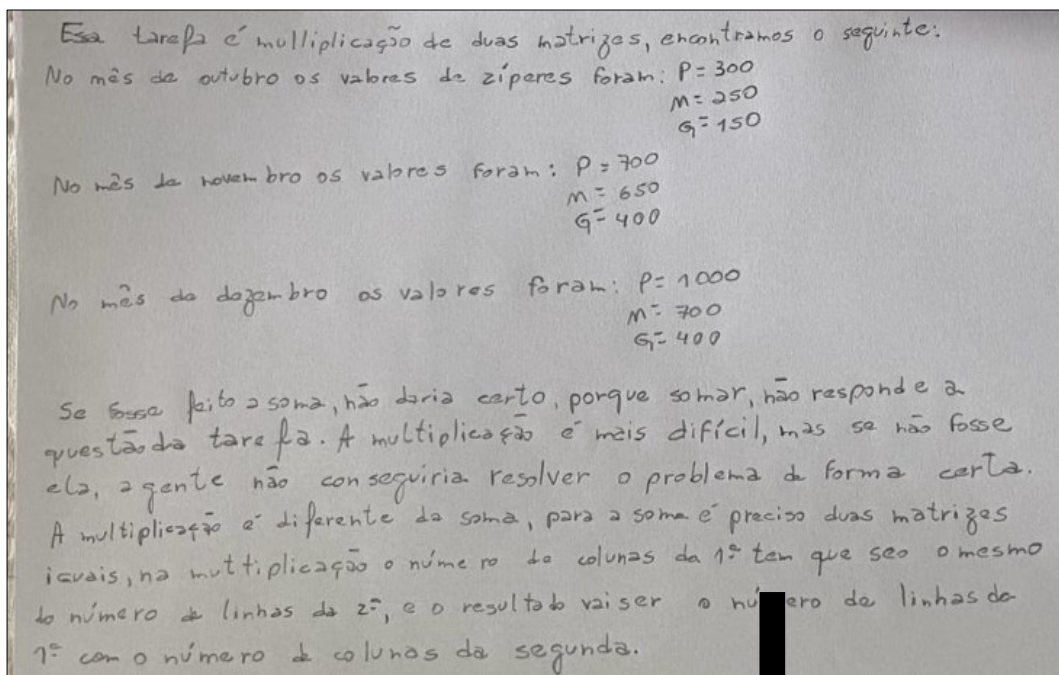 Essa tarefa é mulliplicação de duas matrizes, encontramos o seguinte:
No mês de outubro os valores de zíperes foram: P = 300
M = 250
G = 150
No mês de novembro os valores foram: P = 700
M = 650
G = 400
No mês de dezembro os valores foram: P = 1000
M = 700
G = 400
Se fosse feito a soma, não daria certo, porque somar, não responde a
questão da tarefa. A multiplicação é mais difícil, mas se não fosse
ela, a gente não conseguiria resolver o problema de forma certa.
A multiplicação é diferente da soma, para a soma é preciso duas matrizes
iguais, na multtiplicação o número de colunas da 1ª tem que seo o mesmo
do número de linhas da 2ª, e o resultado vai ser o nú ero de linhas da
1ª com o número de colunas da segunda.